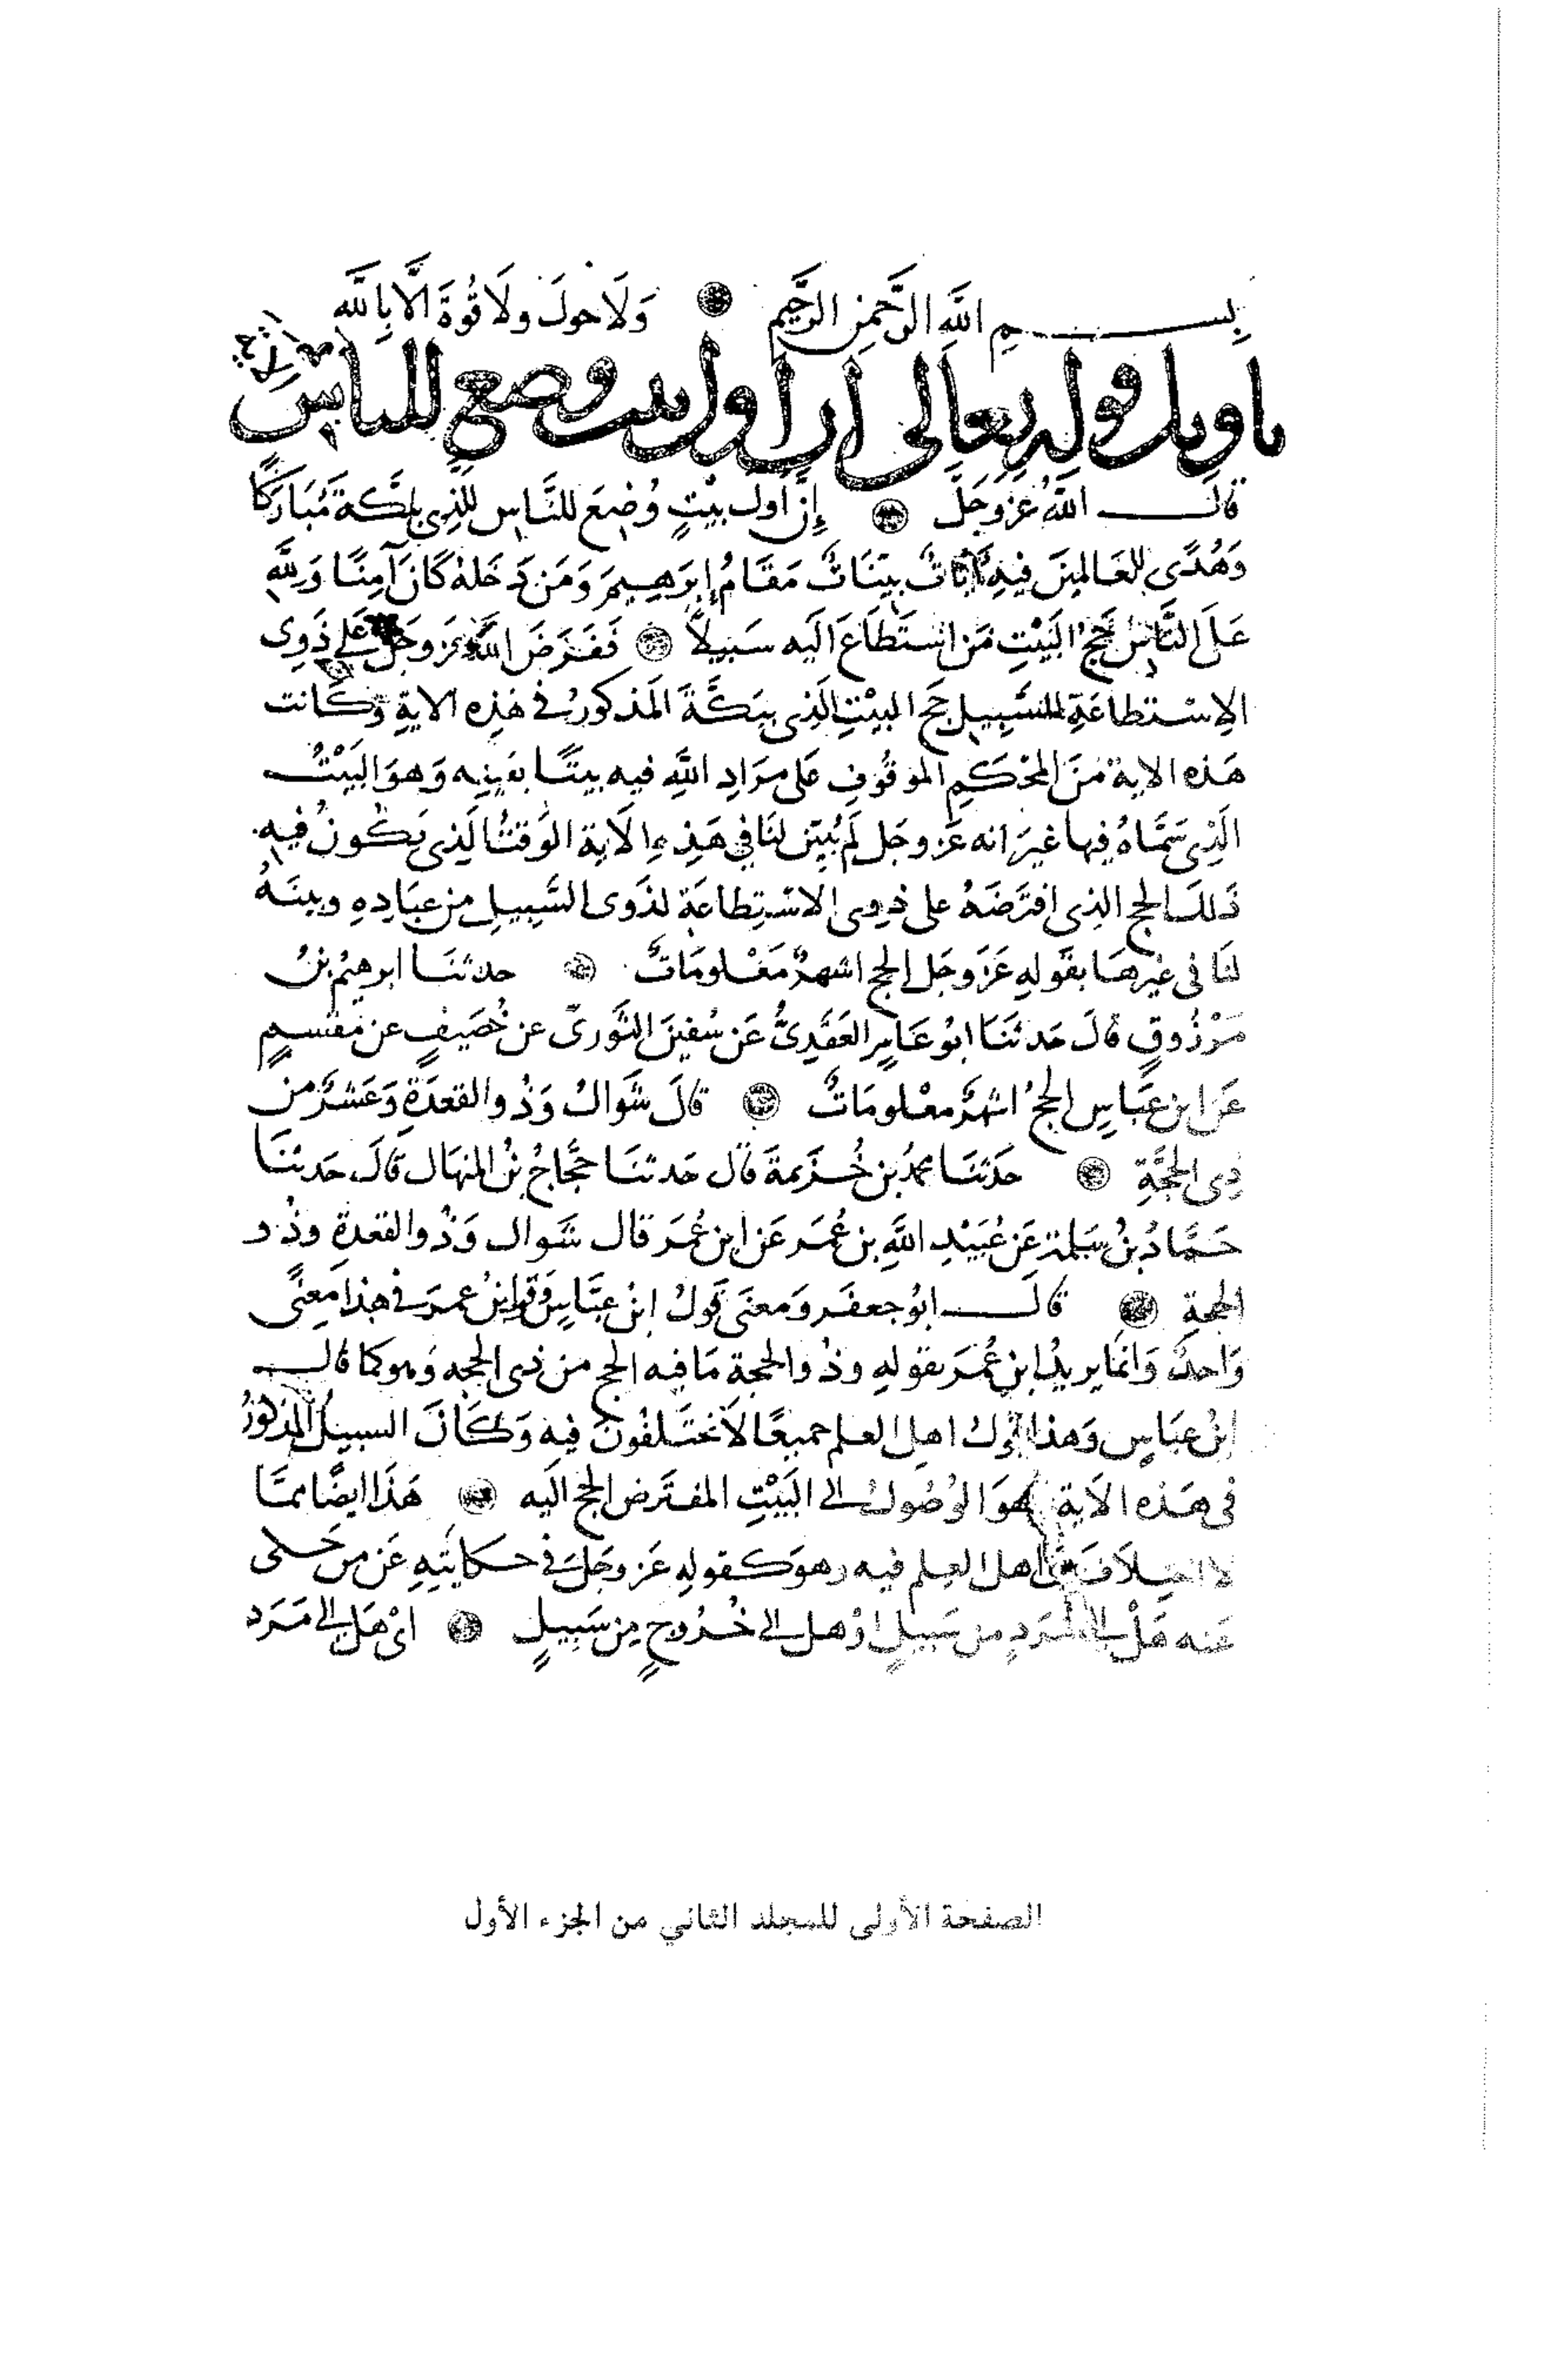 بســـم الله الرَّحمنِ الرَّحِيمِ وَلَا حولَ ولَا قُوَّةَ الَّا بِاللَّه
تاويل قوله تعالى ان اول بيت وضع للناس
قالـــ اللَّهُ عَزَّ وَجَلَّ إِنَّ أولَ بيْتٍ وُضِعَ للنَّاس للَّذِى بِبَكَّةَ مُبَارَكًا
وَهُدًى للعَالمينَ فيهِ آيَاتٌ بيّنَاتٌ مَقَامُ إِبرَهيمَ وَمَن دَخَلهُ كَانَ آمِنًا وَلِلَّهِ
عَلَى النَّاسِ حَجُّ البَيْتِ مَنِ اسْتَطَاعَ الَيه سَبيلاً فَفَرَضَ اللَّهُ عَز وَجَلَّ عَلَى ذَوِى
الاِسْتطَاعَةِ للسَّبِيلِ حَج البيْتِ الَّذِى ببَكَّةَ المَذكورُ فى هَذِهِ الايةِ وَكَانت
هَذه الاية مَنَ المحْكَمِ الموقُوفِ عَلى مرَادِ اللَّهِ فيه بيتًا بعَينِه وَهوَ البَيْتُ
الَّذِى سَمَّاهُ فِيها غيرَ انه عَز وجَل لَم يُبيّن لنَا فى هَذِهِ الاَية الوَقتُ الَّذِى يَكُونُ فيه
ذَلكَ الحج الذِى افتَرَضَهُ على ذوِى الاسْتِطاعَةِ لذَوى السَّبِيلِ مِن عبَادِهِ وبينَهُ
لنَا فى غيرهَا بقَولهِ عَزَّ وجَل الحج اشهرٌ مَعْلومَاتٌ حدثنَا ابرهيمُ بنُ
مَرْزُوقٍ قالَ حَدثنَا ابُو عَامِرٍ العَقَدِىُّ عَن سُفينَ الثَّورِىّ عن خُصَيفٍ عن مقسمٍ
عَن ابن عبَّاسٍ الحجُّ اشهرٌ معْلومَاتٌ قالَ شَوالٌ وَذُو القعدَةِ وَعَشرٌ من
ذِى الحجَّةِ حَدثنَا محمدُ بن خُزَيمةَ قال حَدثنَا حجَّاجُ بنُ المنهَال قالَ حَدثنَا
حَمَّادُ بنُ سَلمة عَن عُبَيْدِ اللَّهِ بن عُمَر عَن ابن عُمَرَ قال شَوال وَذُو القعدةِ وذُو
الحجةِ قالَـــ ابُو جعفَر وَمعنَى قَولُ ابنُ عبَّاسٍ وَقولِ ابنُ عمرَ فى هذا معنًى
وَاحدٌ وَانمَا يريدُ ابن عُمَرَ بقولهِ وذُو الحجة مَا فيه الحج من ذِى الحجه وَهو كما قالـــ
ابنُ عبَاسٍ وَهذا قولُ اهل العلم جميعًا لاَ يختَلفُونَ فيه وَكَانَ السبيلُ المذكورُ
فى هَذه الاَية هوَ الوُصُولُ الى البَيْتِ المفتَرض الحج الَيه هَذَا ايضًا ممَّا
لا اختلاَفَ بين اهل العلم فيه وهوَ كقوله عَز وجَلّ فى حكايتِهِ عَن من حَكى
عَنه هَلْ الى مَرَدٍ من سَبيلٍ اوْ هل الى خُرُوجٍ مِن سَبيلٍ اىْ هَل الى مَرَد
الصفحة الأولى للمجلد الثاني من الجزء الأول